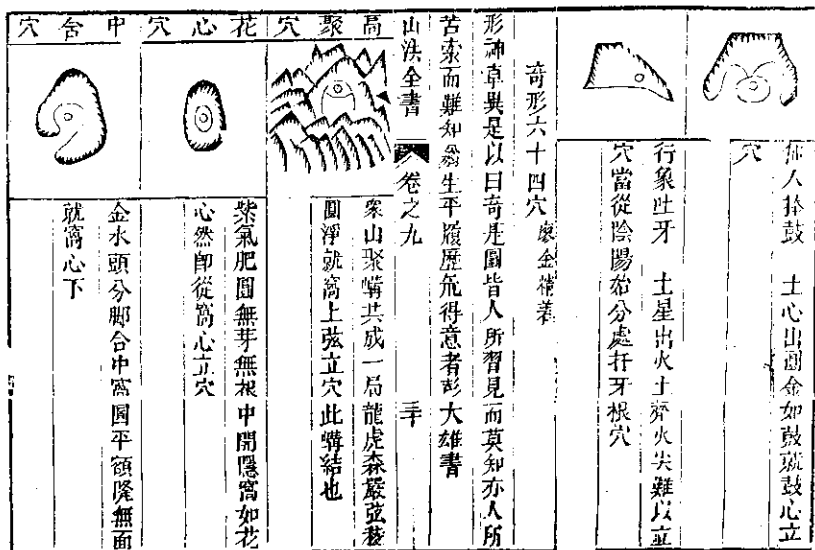 人捧鼓　土心出圓金如鼓就鼓心立
穴
行象吐牙　土星出火土齊火尖難以立
穴當從陰陽始分處扦牙根穴
奇形六十四穴　廖金精著
形神卓異是以曰奇是圖皆人所習見而莫知亦人所
苦索而難知翁生平履歷允得意者彭大雄書
山洋全書　卷之九　三十
高聚穴
眾山聚講共成一局龍虎森嚴弦稜
圓淨就窩上弦立穴此講結也
花心穴
紫氣肥圓無芽無根中開隱窩如花
心然卽從窩心立穴
中含穴
金水頭分腳合中窩圓平額隆無面
就窩心下